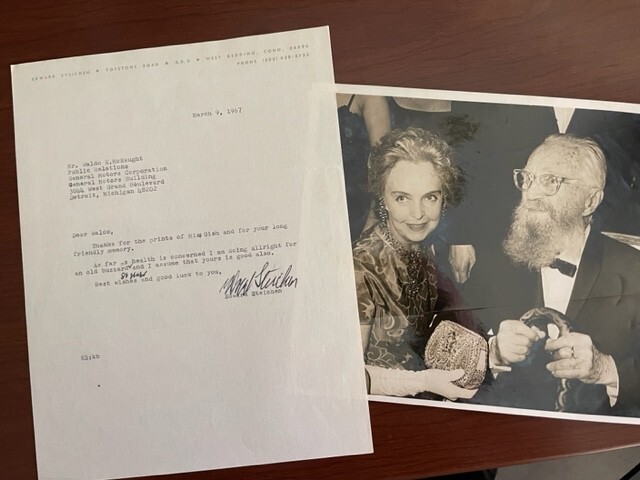 EDWARD STEICHEN • TOPSTONE ROAD • R.F.D • WEST REDDING, CONN. 06896
PHONE (203)
March 9, 1967
Mr. Waldo E.McNaught
Public Relations
General Motors Corporation
General Motors Building
3044 West Grand Boulevard
Detroit, Michigan 48202
Dear Waldo,
Thanks for the prints of Miss Gish and for your long
friendly memory.
As far as health is concerned I am doing allright for
an old buzzard and I assume that yours is good also.
Best wishes and good luck to you,
Edward Steichen
ES:kb